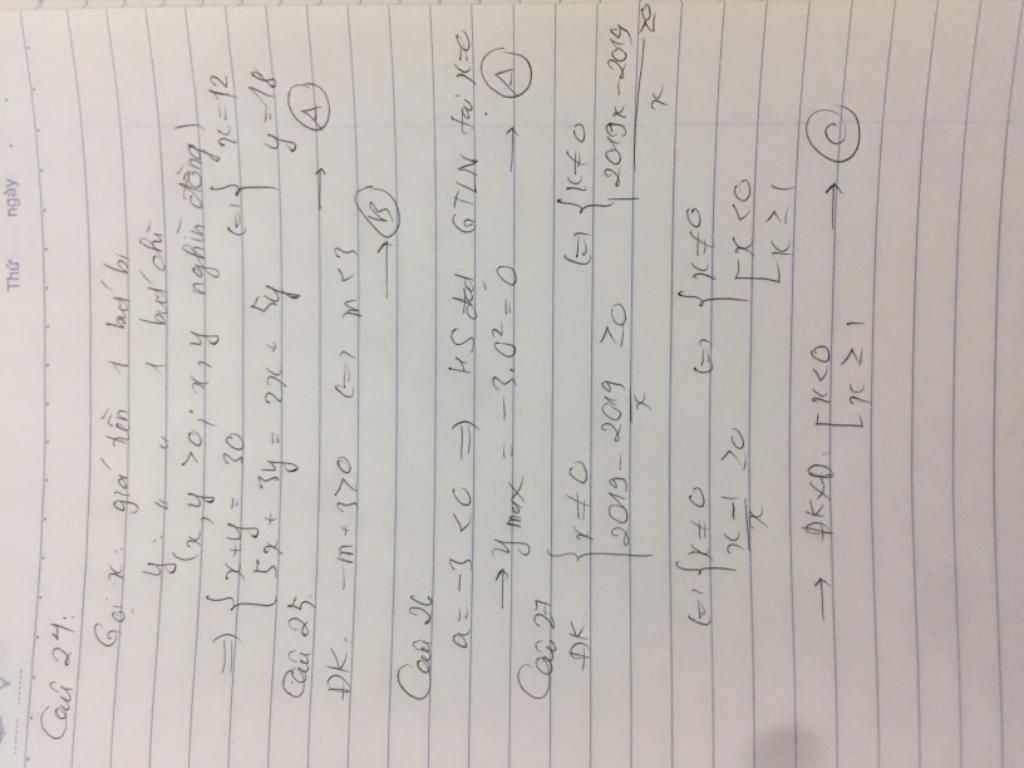 Thứ ngày
Câu 24:
Gọi x: giá tiền 1 bút bi
y: " " 1 bút chì
(x, y > 0; x, y nghìn đồng)
=) { x + y = 30
5x + 3y = 2x + 5y (=) { x = 12
y = 18
→ A
Câu 25.
ĐK. -m + 3 > 0 (=) m < 3
→ B
Câu 26.
a = -3 < 0 =) HS đạt GTLN tại x = 0
→ y max = -3.0² = 0 → A
Câu 27
ĐK. { x ≠ 0
2019 - 2019/x ≥ 0 (=) { x ≠ 0
(2019x - 2019)/x ≥ 0
(=) { x ≠ 0
(x - 1)/x ≥ 0 (=) { x ≠ 0
[ x < 0
x ≥ 1
→ ĐKXĐ. [ x < 0
x ≥ 1 → C